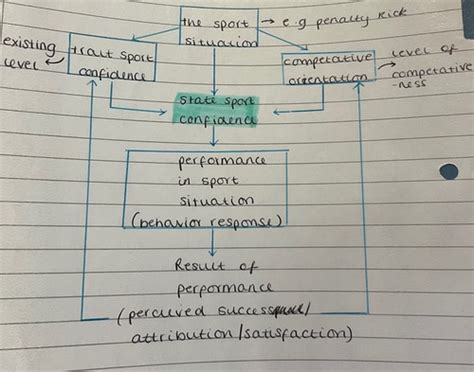 the sport → e.g penalty kick
situation
existing
level
trait sport
confidence
competative
orientation
level of
competative
-ness
state sport
confidence
performance
in sport
situation
(behavior response)
Result of
performance
(percieved success/
attribution/satisfaction)